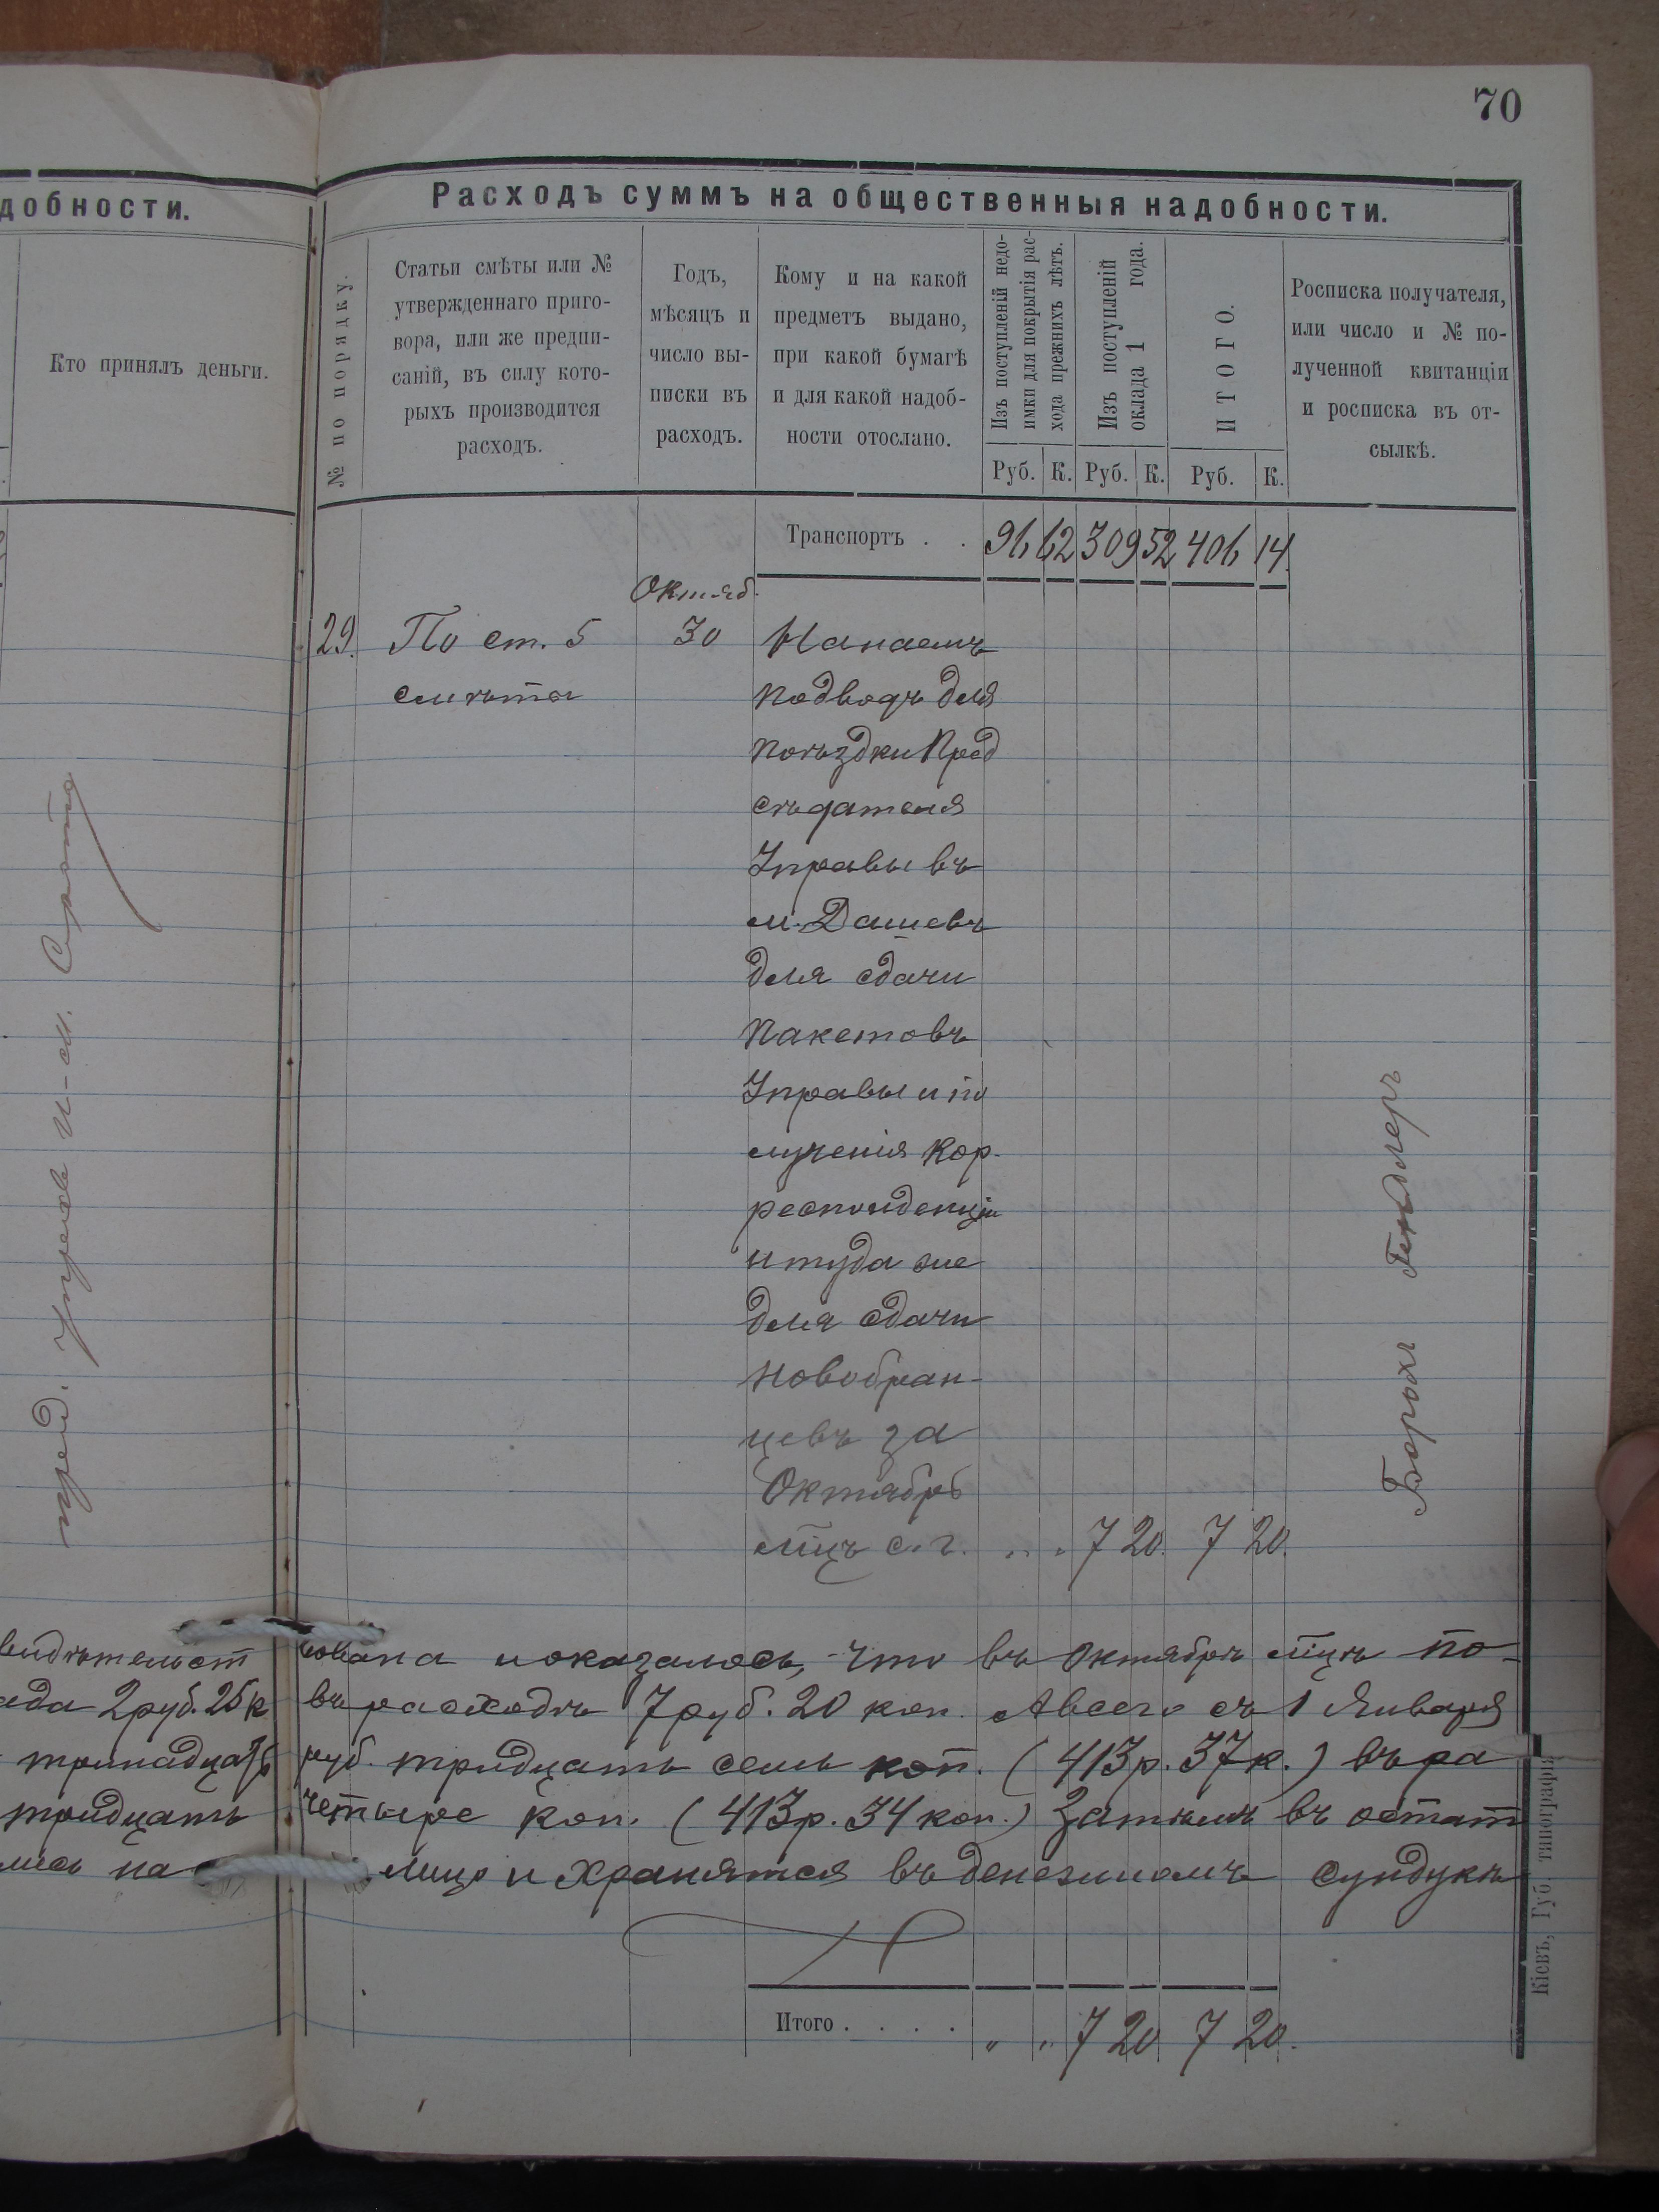 70
добности.
Кто принялъ деньги.
пред. И-м. Сирота
Расходъ суммъ на общественныя надобности.
№ по порядку.
Статьи смѣты или №
утвержденнаго приго-
вора, или же предпи-
саній, въ силу кото-
рыхъ производится
расходъ.
Годъ,
мѣсяцъ и
число вы-
писки въ
расходъ.
Кому и на какой
предметъ выдано,
при какой бумагѣ
и для какой надоб-
ности отослано.
Изъ поступленій недо-
имки для покрытія рас-
хода прежнихъ лѣтъ.
Изъ поступленій
оклада 1 года.
ИТОГО.
Росписка получателя,
или число и № по-
лученной квитанціи
и росписка въ от-
сылкѣ.
Руб. К. Руб. К. Руб. К.
Транспортъ . . 96 62 309 52 406 14.
Октяб.
29. По ст. 5 30 Нанаемъ
смѣты подводъ для
поѣздки Пред
сѣдателя
Управы въ
м. Дашевъ
для сдачи
пакетовъ
Управы и по
лученія кор-
респонденціи
и туда же
для сдачи
новобран-
цевъ за
Октябрь
мцъ с. г. „ „ 7 20. 7 20.
Борохъ Гендлеръ
видѣтельст вована и оказалось, что въ Октябрѣ мцѣ по-
ада 2 руб. 25 к въ расходѣ 7 руб. 20 коп. А всего съ 1 Января
тринадцать руб. тридцать семь коп. (413 р. 37 к.) въ ра
тридцать четыре коп. (413 р. 34 коп.) Затѣмъ въ остат
лись на лицо и хранятся въ денежномъ сундукѣ
Итого . . . . „ „ 7 20 7 20.
Кіевъ, Губ. типографія